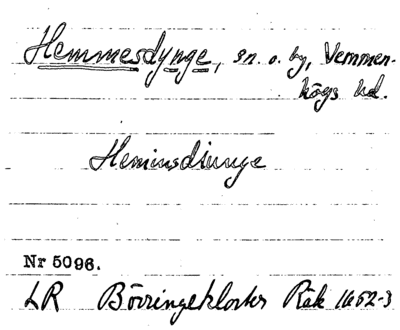 Hemmesdynge, sn. o. by, Vemmen-
högs hd.
Heminsdiunge
Nr 5096.
LR Börringekloster Räk 1652-3